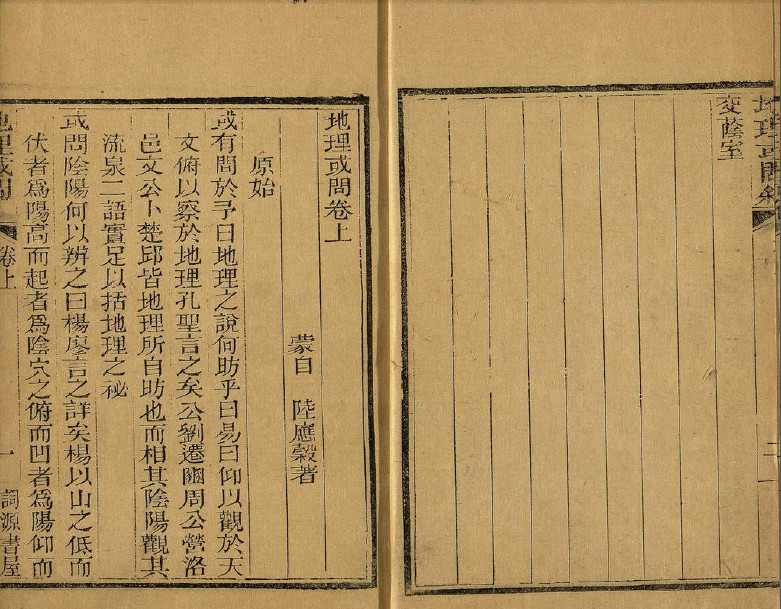 地理或問
二
交蔭室
地理或問卷上
蒙自 陸應穀著
原始
或有問於予曰地理之說何昉乎曰易曰仰以觀於天
文俯以察於地理孔聖言之矣公劉遷豳周公營洛
邑文公卜楚邱皆地理所自昉也而相其陰陽觀其
流泉二語實足以括地理之祕
或問陰陽何以辨之曰楊廖言之詳矣楊以山之低而
伏者爲陽高而起者爲陰穴之俯而凹者爲陽仰而
地理或問 卷上 一 詞源書屋